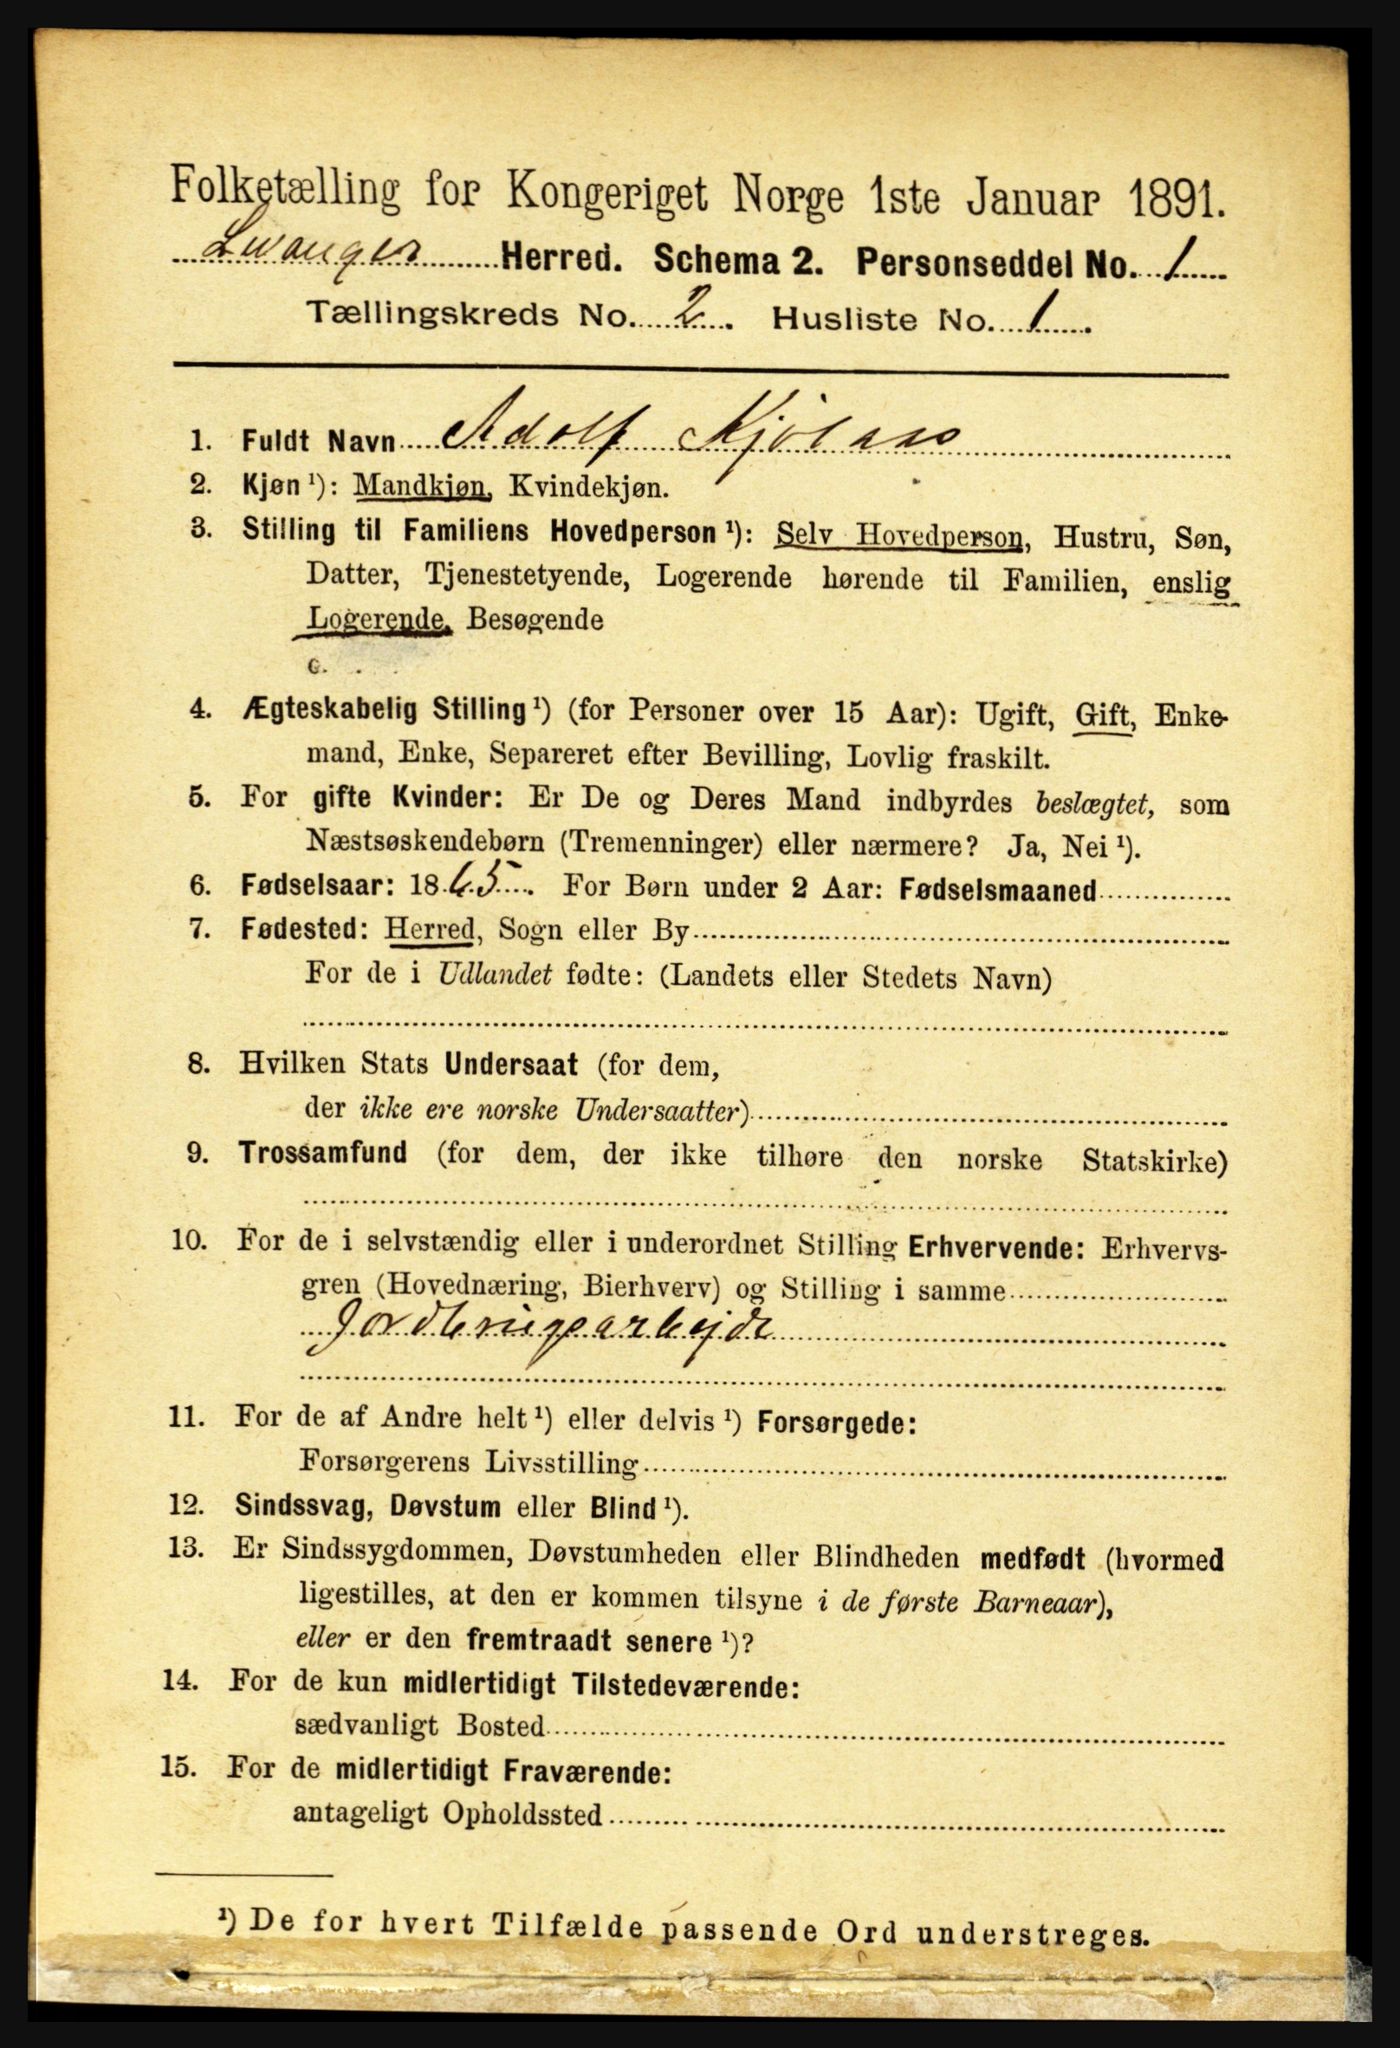 Folketælling for Kongeriget Norge 1ste Januar 1891.
Herred. Schema 2. Personseddel No. 1
Tællingskreds No. 2. Husliste No. 1.
1. Fuldt Navn Adolf Kjölaas
2. Kjøn ¹): Mandkjøn, Kvindekjøn.
3. Stilling til Familiens Hovedperson ¹): Selv Hovedperson, Hustru, Søn,
Datter, Tjenestetyende, Logerende hørende til Familien, enslig
Logerende, Besøgende
c.
4. Ægteskabelig Stilling ¹) (for Personer over 15 Aar): Ugift, Gift, Enke-
mand, Enke, Separeret efter Bevilling, Lovlig fraskilt.
5. For gifte Kvinder: Er De og Deres Mand indbyrdes beslægtet, som
Næstsøskendebørn (Tremenninger) eller nærmere? Ja, Nei ¹).
6. Fødselsaar: 1865. For Børn under 2 Aar: Fødselsmaaned
7. Fødested: Herred, Sogn eller By
For de i Udlandet fødte: (Landets eller Stedets Navn)
8. Hvilken Stats Undersaat (for dem,
der ikke ere norske Undersaatter)
9. Trossamfund (for dem, der ikke tilhøre den norske Statskirke)
10. For de i selvstændig eller i underordnet Stilling Erhvervende: Erhvervs-
gren (Hovednæring, Bierhverv) og Stilling i samme
Jordbrugsarbejde
11. For de af Andre helt ¹) eller delvis ¹) Forsørgede:
Forsørgerens Livsstilling
12. Sindssvag, Døvstum eller Blind ¹).
13. Er Sindssygdommen, Døvstumheden eller Blindheden medfødt (hvormed
ligestilles, at den er kommen tilsyne i de første Barneaar),
eller er den fremtraadt senere ¹)?
14. For de kun midlertidigt Tilstedeværende:
sædvanligt Bosted
15. For de midlertidigt Fraværende:
antageligt Opholdssted
¹) De for hvert Tilfælde passende Ord understreges.